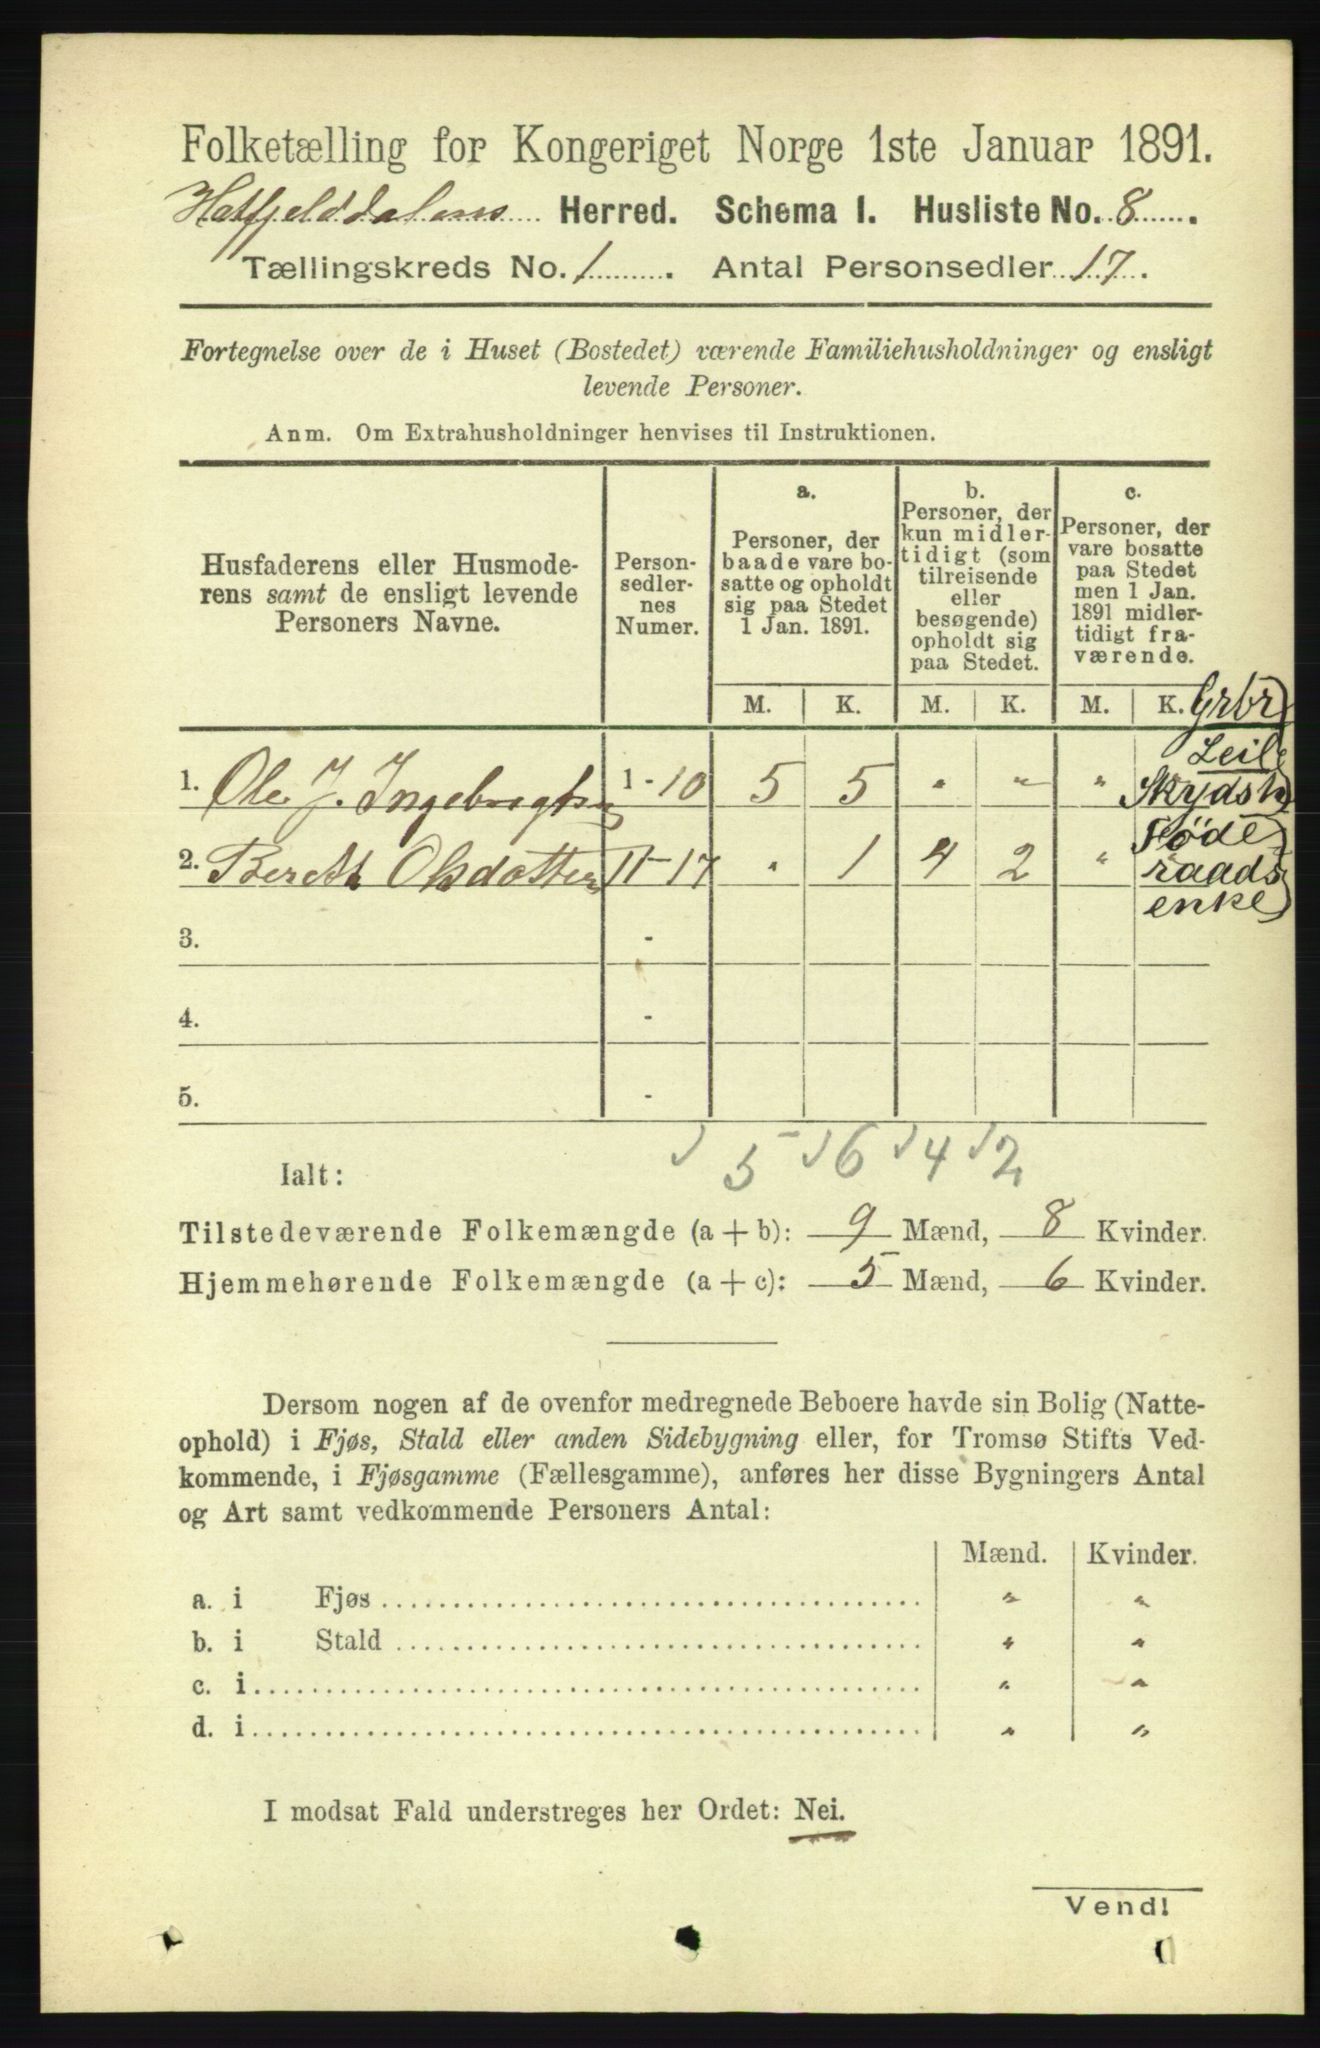 Folketælling for Kongeriget Norge 1ste Januar 1891.
Hatfjelddalens Herred. Schema I. Husliste No. 8.
Tællingskreds No. 1. Antal Personsedler 17.
Fortegnelse over de i Huset (Bostedet) værende Familiehusholdninger og ensligt
levende Personer.
Anm. Om Extrahusholdninger henvises til Instruktionen.
Husfaderens eller Husmode-
rens samt de ensligt levende
Personers Navne.
Person-
sedler-
nes
Numer.
a.
Personer, der
baade vare bo-
satte og opholdt
sig paa Stedet
1 Jan. 1891.
b.
Personer, der
kun midler-
tidigt (som
tilreisende
eller
besøgende)
opholdt sig
paa Stedet.
c.
Personer, der
vare bosatte
paa Stedet
men 1 Jan.
1891 midler-
tidigt fra-
værende.
M. K. M. K. M. K. Grbr
Leil
1. Ole J. Ingebrigtsen 1-10 5 5 " " " Skydsh
Føde
2. Bereth Olsdatter 11-17 " 1 4 2 " raads
enke
3. -
4. -
5. -
5 6 4 2
Ialt:
Tilstedeværende Folkemængde (a + b): 9 Mænd, 8 Kvinder.
Hjemmehørende Folkemængde (a + c): 5 Mænd, 6 Kvinder.
Dersom nogen af de ovenfor medregnede Beboere havde sin Bolig (Natte-
ophold) i Fjøs, Stald eller anden Sidebygning eller, for Tromsø Stifts Ved-
kommende, i Fjøsgamme (Fællesgamme), anføres her disse Bygningers Antal
og Art samt vedkommende Personers Antal:
Mænd. Kvinder.
a. i Fjøs " "
b. i Stald " "
c. i " "
d. i " "
I modsat Fald understreges her Ordet: Nei.
Vend!